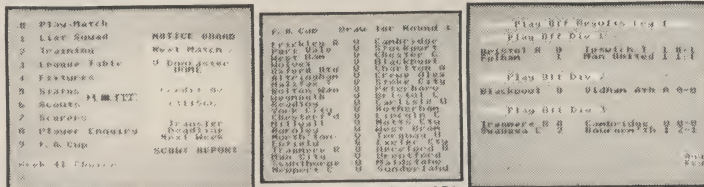 0 Play Match
1 List Squad
2 Training
3 League Table
4 Fixtures
5 Status
6 Scouts
7 Scorers
8 Player Enquiry
9 F. A. Cup
Week 41
NOTICE BOARD
Next Match
HOME
Transfer
Deadline
Next Week
SCOUT REPORT
F. A. Cup Draw for Round 1
Frickley A U Cambridge
Port Vale U Stockport
West Ham U Chester C
Wolves U Blackpool
Oxford Utd U Charlton A
Altrincham U Crewe Alex
Halifax U Stoke City
Bolton Wan U Peterboro
Weymouth U Bristol C
Reading U Carlisle U
York City U Rotherham
Chesterf'd U Lincoln C
Millwall U Notts Cty
Barnsley U West Brom
North'ton U Torquay U
Enfield U Exeter Cty
Tranmere R U Hereford U
Man City U Brentford
Scunthorpe U Maidstone
Newport C U Sunderland
Play Off Results Leg 1
Play Off Div 1
Bristol R 0 Ipswich T 1 0-1
Fulham 1 Man United 1 1-1
Play Off Div 2
Blackpool 0 Oldham Ath A 0-0
Play Off Div 3
Tranmere R 0 Cambridge 0 0-0
Swansea C 2 Bournem'th 1 2-1